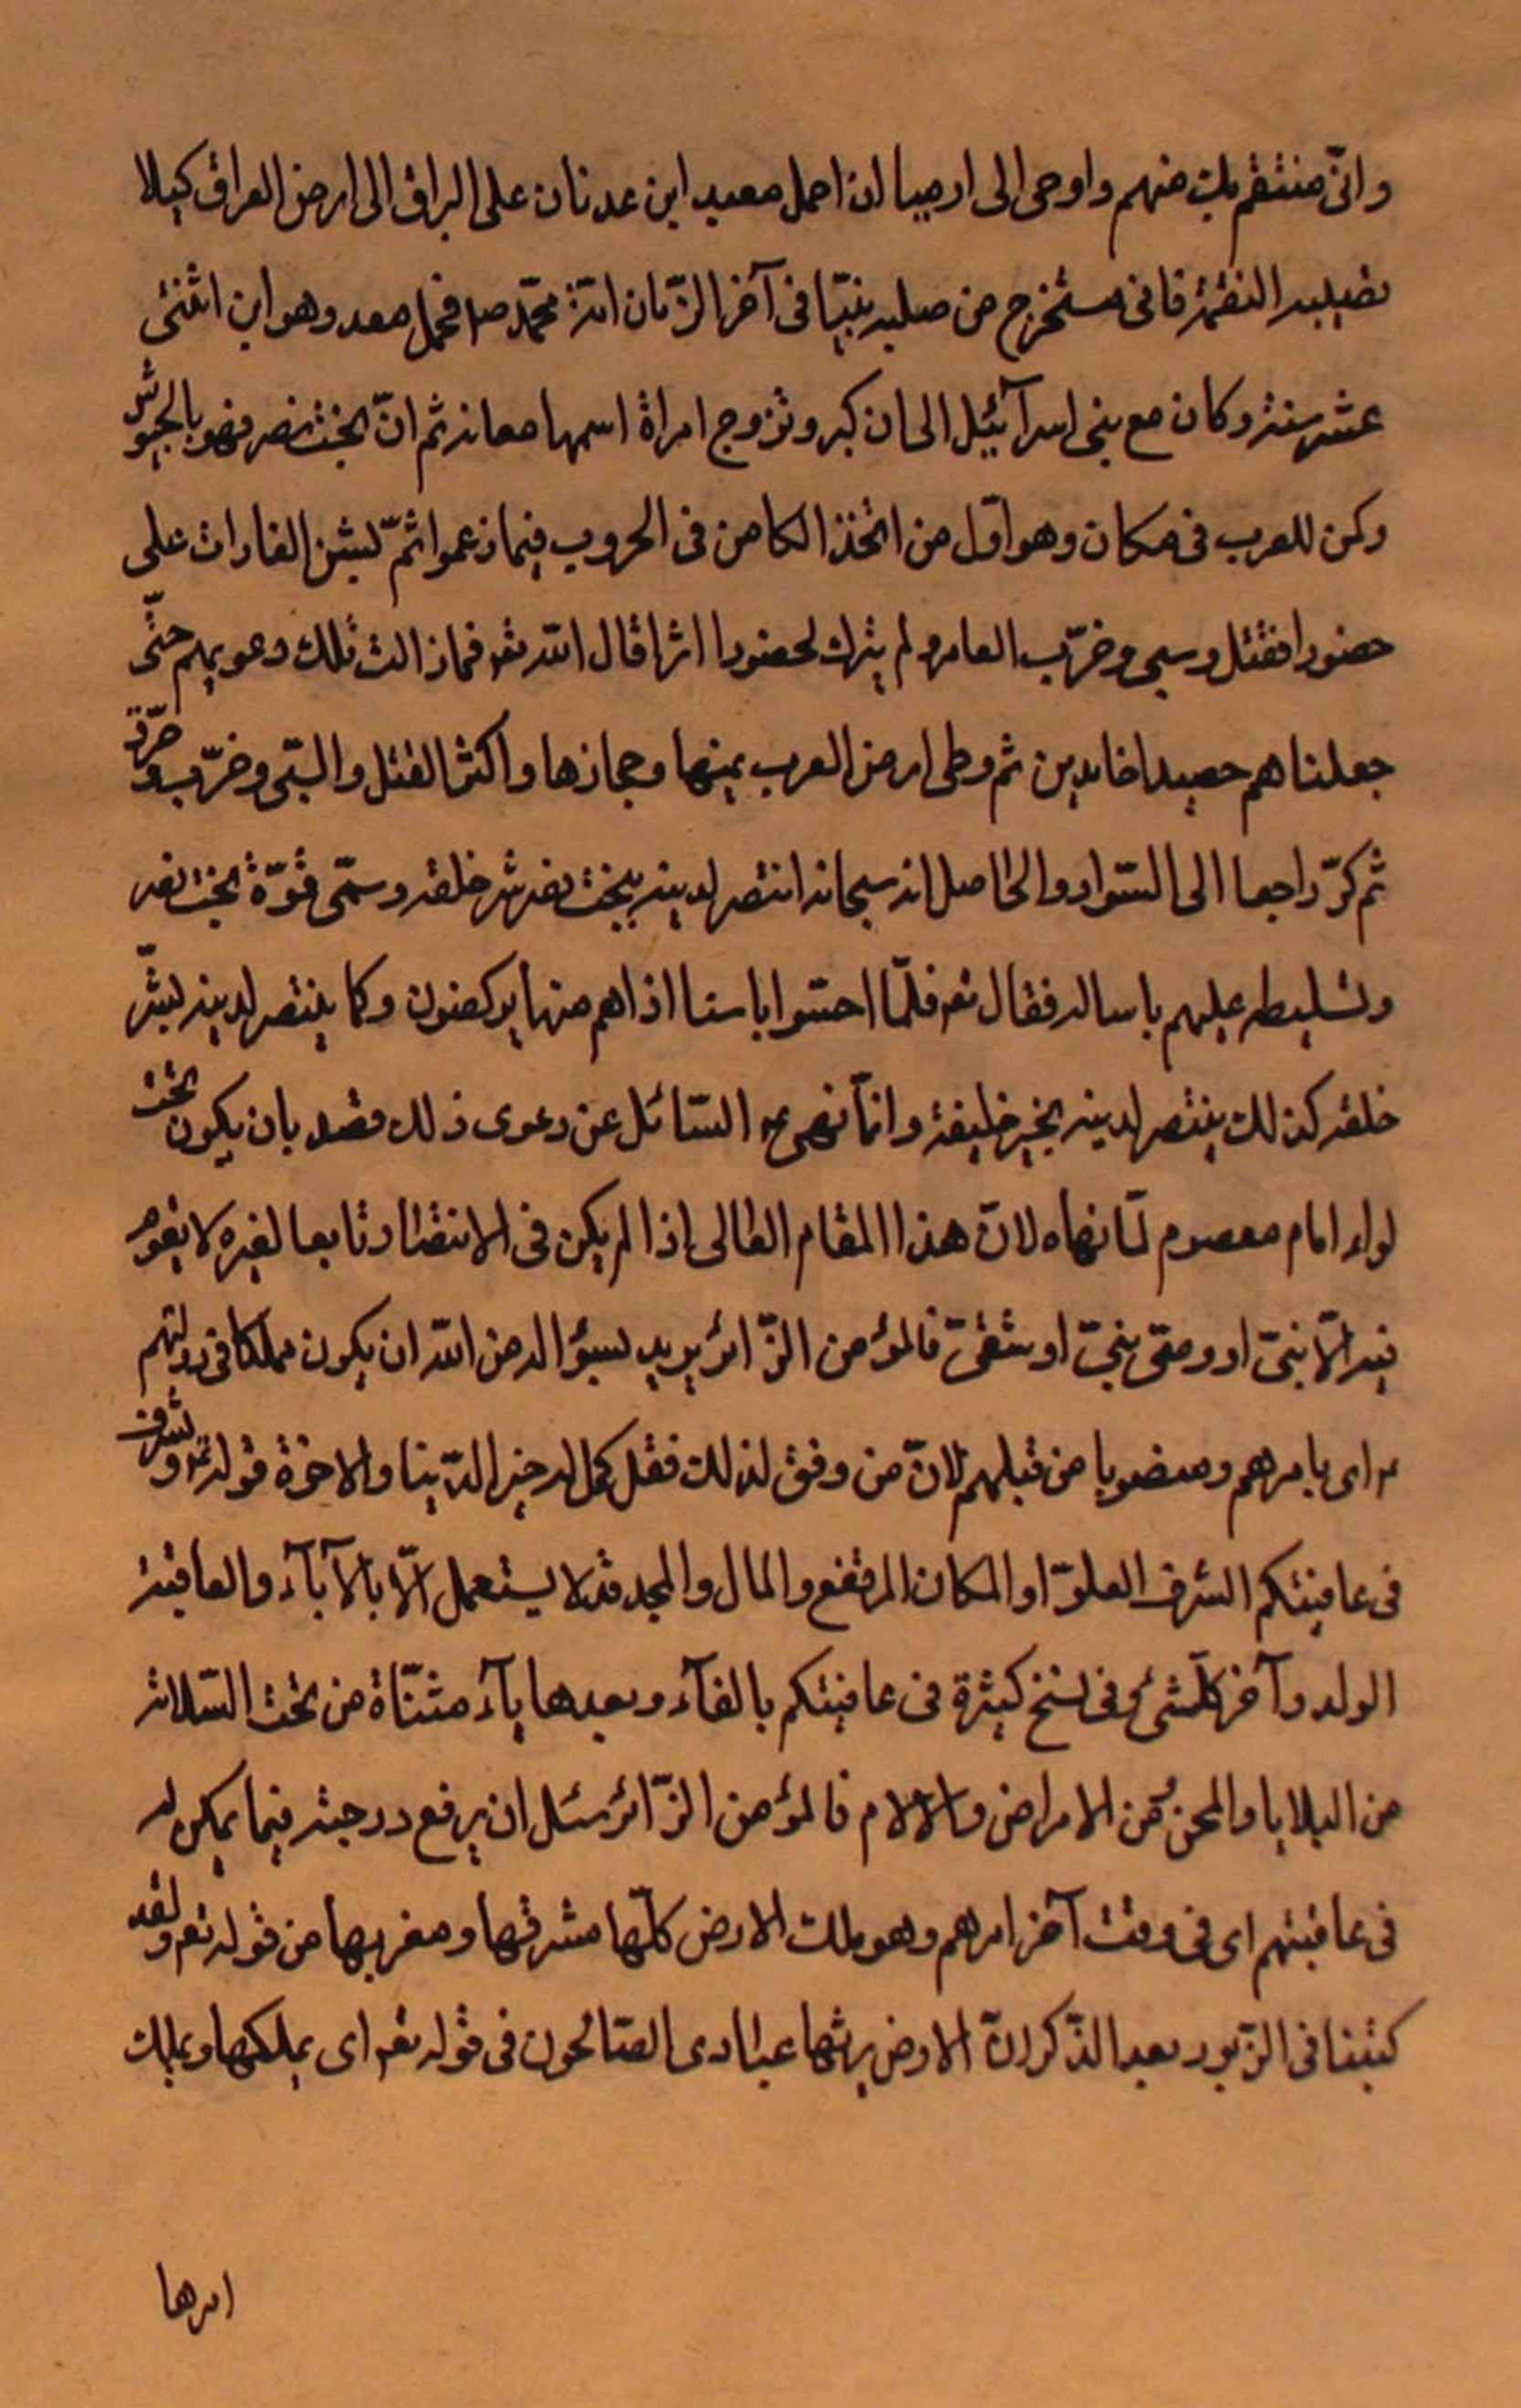 وانّى منتقم بك منهم واوحى الى ارميا ان احمل معد ابن عدنان على البراق الى ارض العراق كيلا
تصيبه النقمة فانى مستخرج من صلبه نبيّا فى آخر الزّمان اسمه محمّد ص فحمل معد وهو ابن اثنتى
عشر سنة وكان مع بنى اسرآئيل الى ان كبر وتزوج امراة اسمها معانه ثم انّ بخت نصر نهض بالجيوش
وكمن للعرب فى مكان وهو اوّل من اتّخذ الكامن فى الحروب فيما زعموا ثمّ ليشن الغارات على
حضورا فقتل وسبى وخرّب العامر ولم يترك لحضورا اثرا قال اللّه تعـ فمازالت تلك دعويهم حتّى
جعلناهم حصيدا خامدين ثم وطى ارض العرب يمنها وحجازها واكثر القتل والسّبى وخرّب وحرّق
ثم كرّ راجعا الى السّواد والحاصل انه سبحانه انتصر لدينه ببخت نصر شر خلقه وسمّى قوّة بخت نصر
وتسليطه عليهم باسا له فقال تعـ فلمّا احسّوا باسنا اذا هم منها يركضون وكما ينتصر لدينه لبشّر
خلقه كذلك ينتصر لدينه بخير خليفة وانّما نهى ع السّائل عن دعوى ذلك وقصد بان يكون تحت
لواء امام معصوم لمّا نهاه لانّ هذا المقام العالى اذا لم يكن فى الانتصار تابعا لغيره لا يقوم
فيه الّا نبىّ او وصىّ نبىّ او شقىّ فالمؤمن الزّائر يريد بسؤاله من اللّه ان يكون مملكا فى دولتهم
ع اى بامرهم ومنصوبا من قبلهم لانّ من وفق لذلك فقد كمل له خير الدّنيا والاخرة قوله ع وتشرف
فى عاقبتكم الشرف العلوّ او المكان المرتفع والمال والمجد قد لا يستعمل الّا بالآبآء والعاقبة
الولد وآخر كلّ شئ وفى نسخ كثيرة فى عافيتكم بالفآء وبعدها يآء مثنّاة من تحت السّلامة
من البلايا والمحن ومن الامراض والالام فالمؤمن الزّائر سئل ان يرفع درجته فيما يمكن له
فى عاقبتهم اى فى وقت آخر امرهم وهو ملك الارض كلّها مشرقها ومغربها من قوله تعـ ولقد
كتبنا فى الزّبور بعد الذّكر انّ الارض يرثها عبادى الصّالحون فى قوله تعـ اى يملكها ويملك
امرها